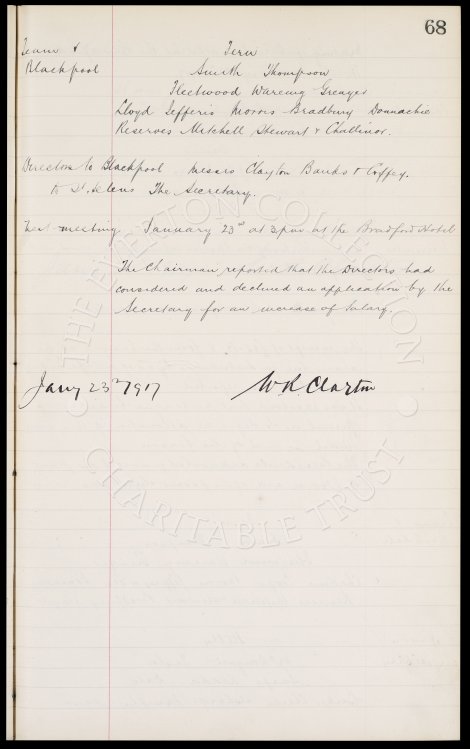 68
Team v Fern
Blackpool Smith Thompson
Fleetwood Wareing Grenyer
Lloyd Jefferis Morris Bradbury Donnachie
Reserves Mitchell, Stewart & Challinor.
Directors to Blackpool Messrs Clayton Banks & Coffey.
to St. Helens The Secretary.
Next meeting January 23rd at 3pm at the Bradford Hotel
The Chairman reported that the Directors had
considered and declined an application by the
Secretary for an increase of Salary.
Jany 23rd 1917 W R Clayton
THE EVERTON COLLECTION
CHARITABLE TRUST